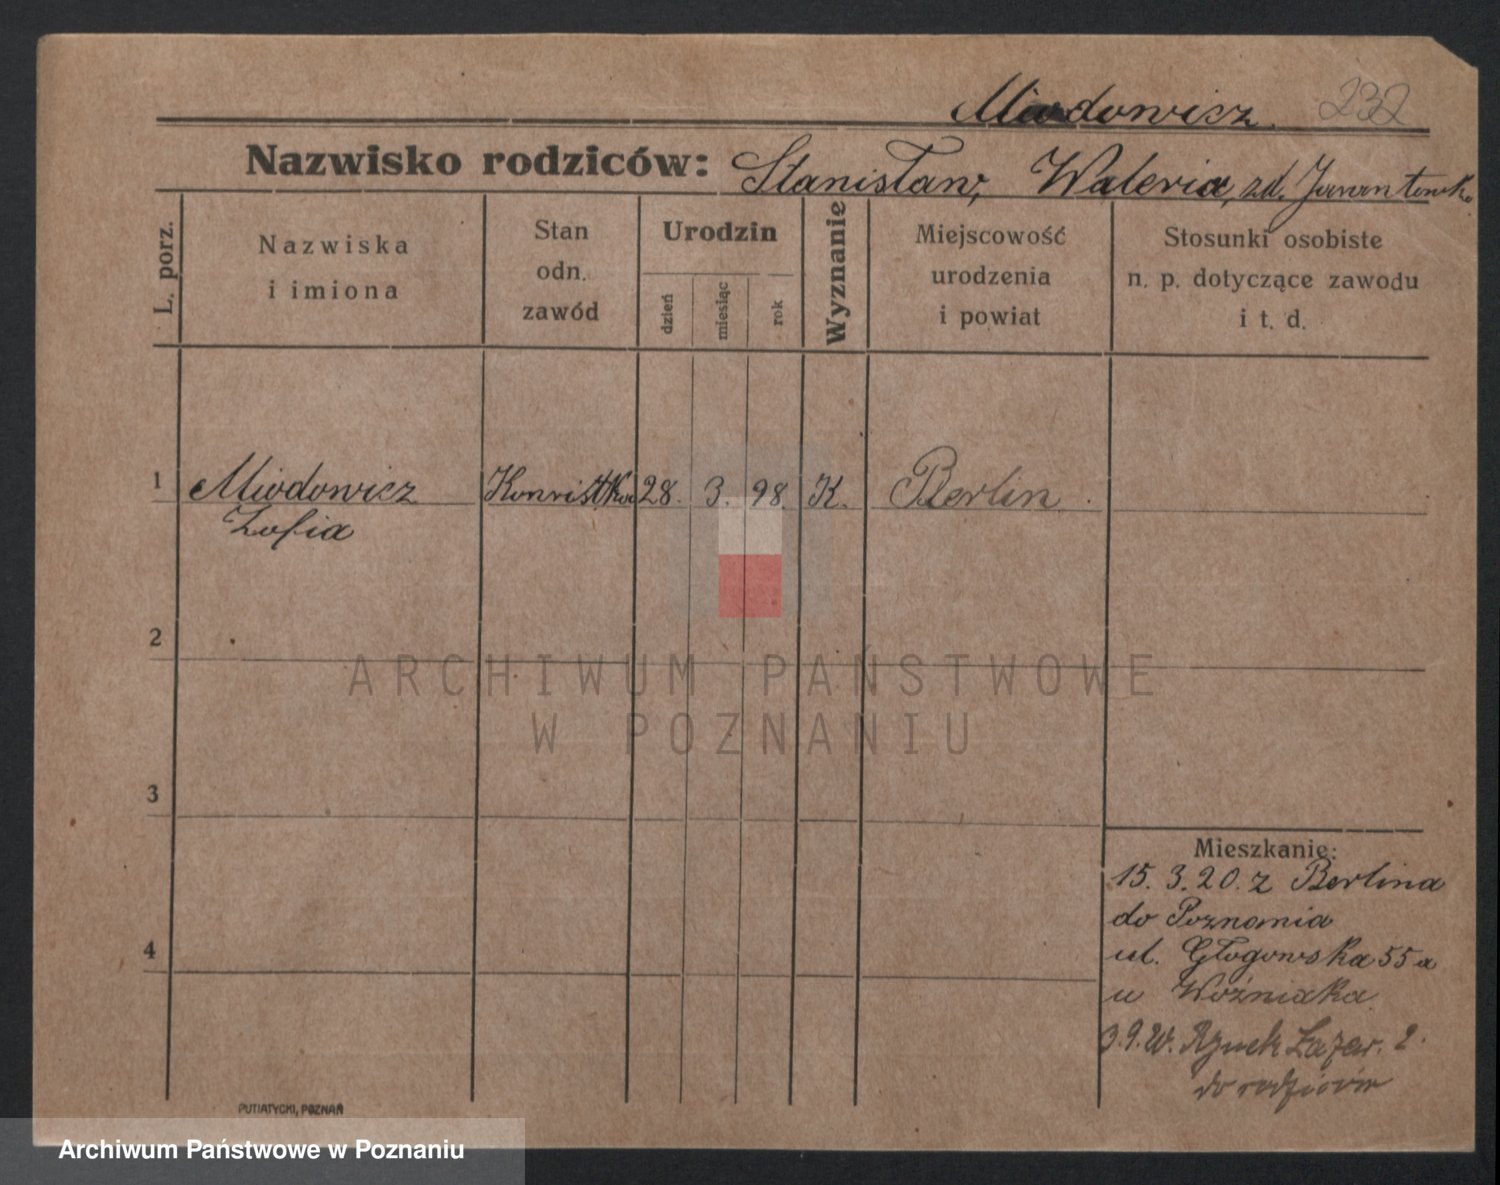 Miodowicz. 232
Nazwisko rodziców: Stanisław, Waleria, zd.
L. porz.
Nazwiska
i imiona
Stan
odn.
zawód
Urodzin
dzień
miesiąc
rok
Wyznanie
Miejscowość
urodzenia
i powiat
Stosunki osobiste
n. p. dotyczące zawodu
i t. d.
1 Miodowicz 28. 3. 98. K. Berlin.
Zofia
2
ARCHIWUM PAŃSTWOWE
W POZNANIU
3
Mieszkanie:
15. 3. 20. z Berlina
do Poznania
4
ul. Głogowska 55a
u Woźniaka
3.9. Rynek Łazar. 2.
do rodziców
PUTIATYCKI, POZNAŃ
Archiwum Państwowe w Poznaniu